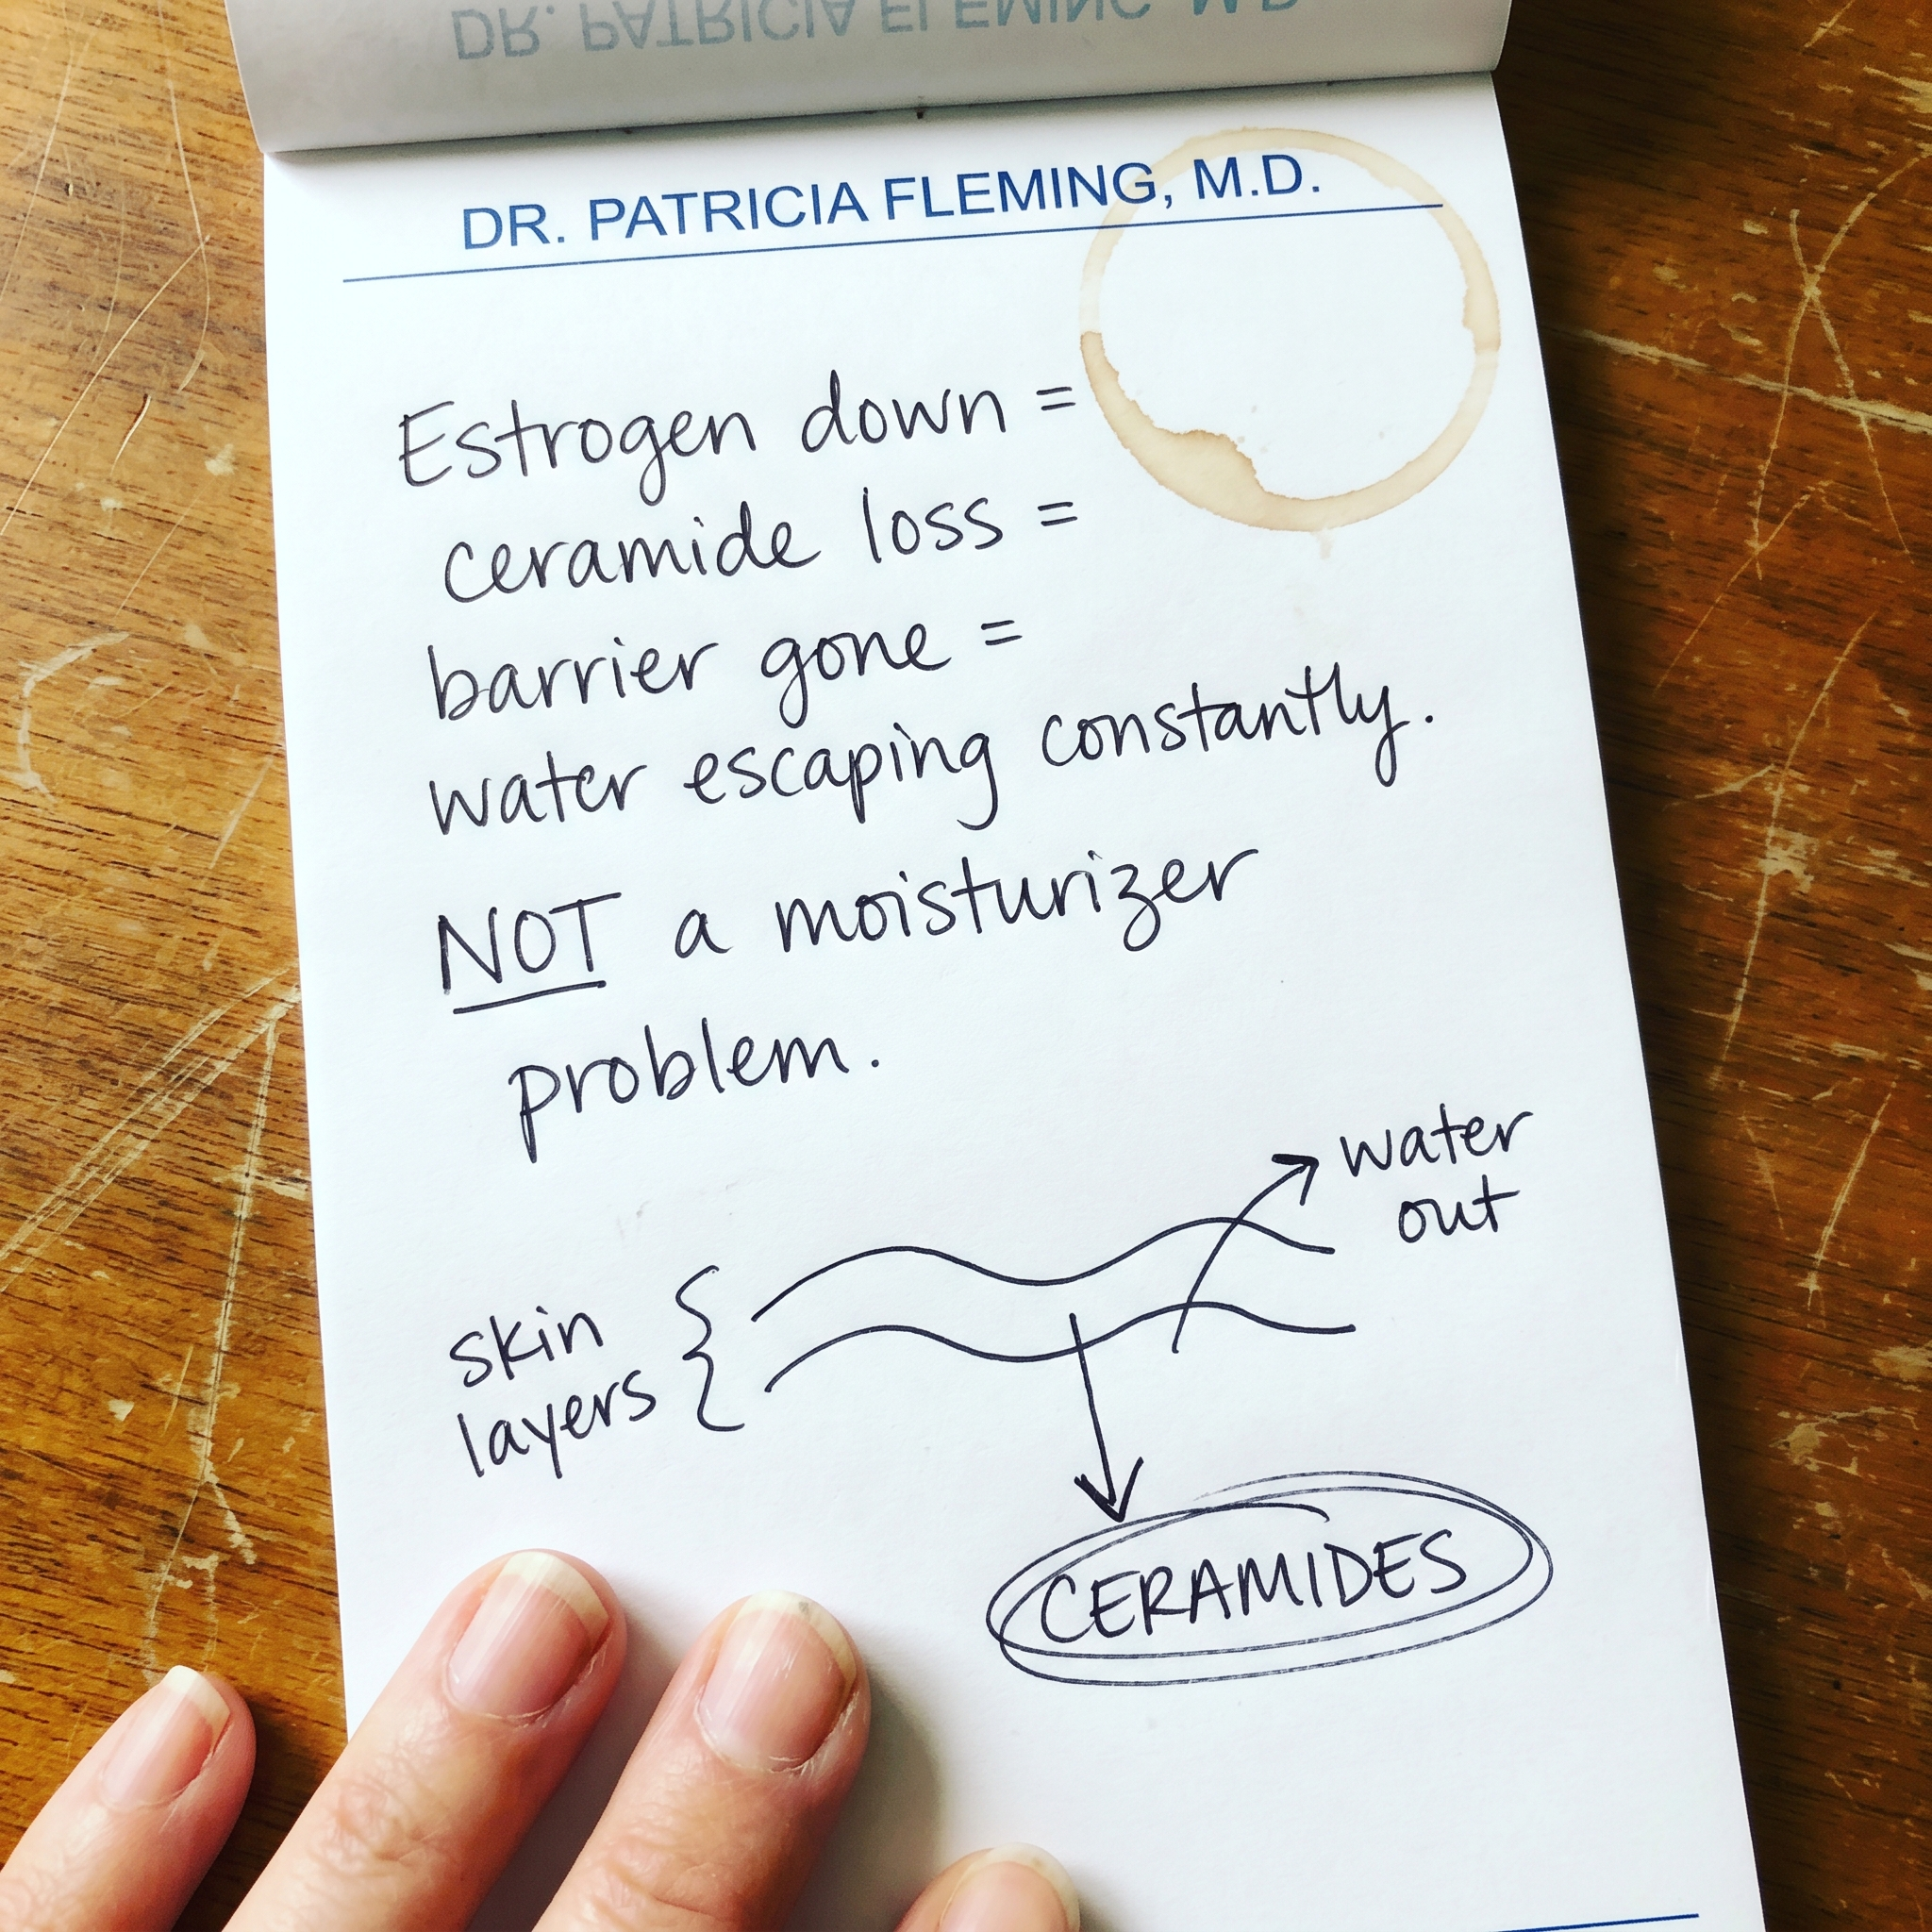 DR. PATRICIA FLEMING, M.D.
DR. PATRICIA FLEMING, M.D.
Estrogen down =
ceramide loss =
barrier gone =
water escaping constantly.
NOT a moisturizer
problem.
water
out
skin
layers
CERAMIDES